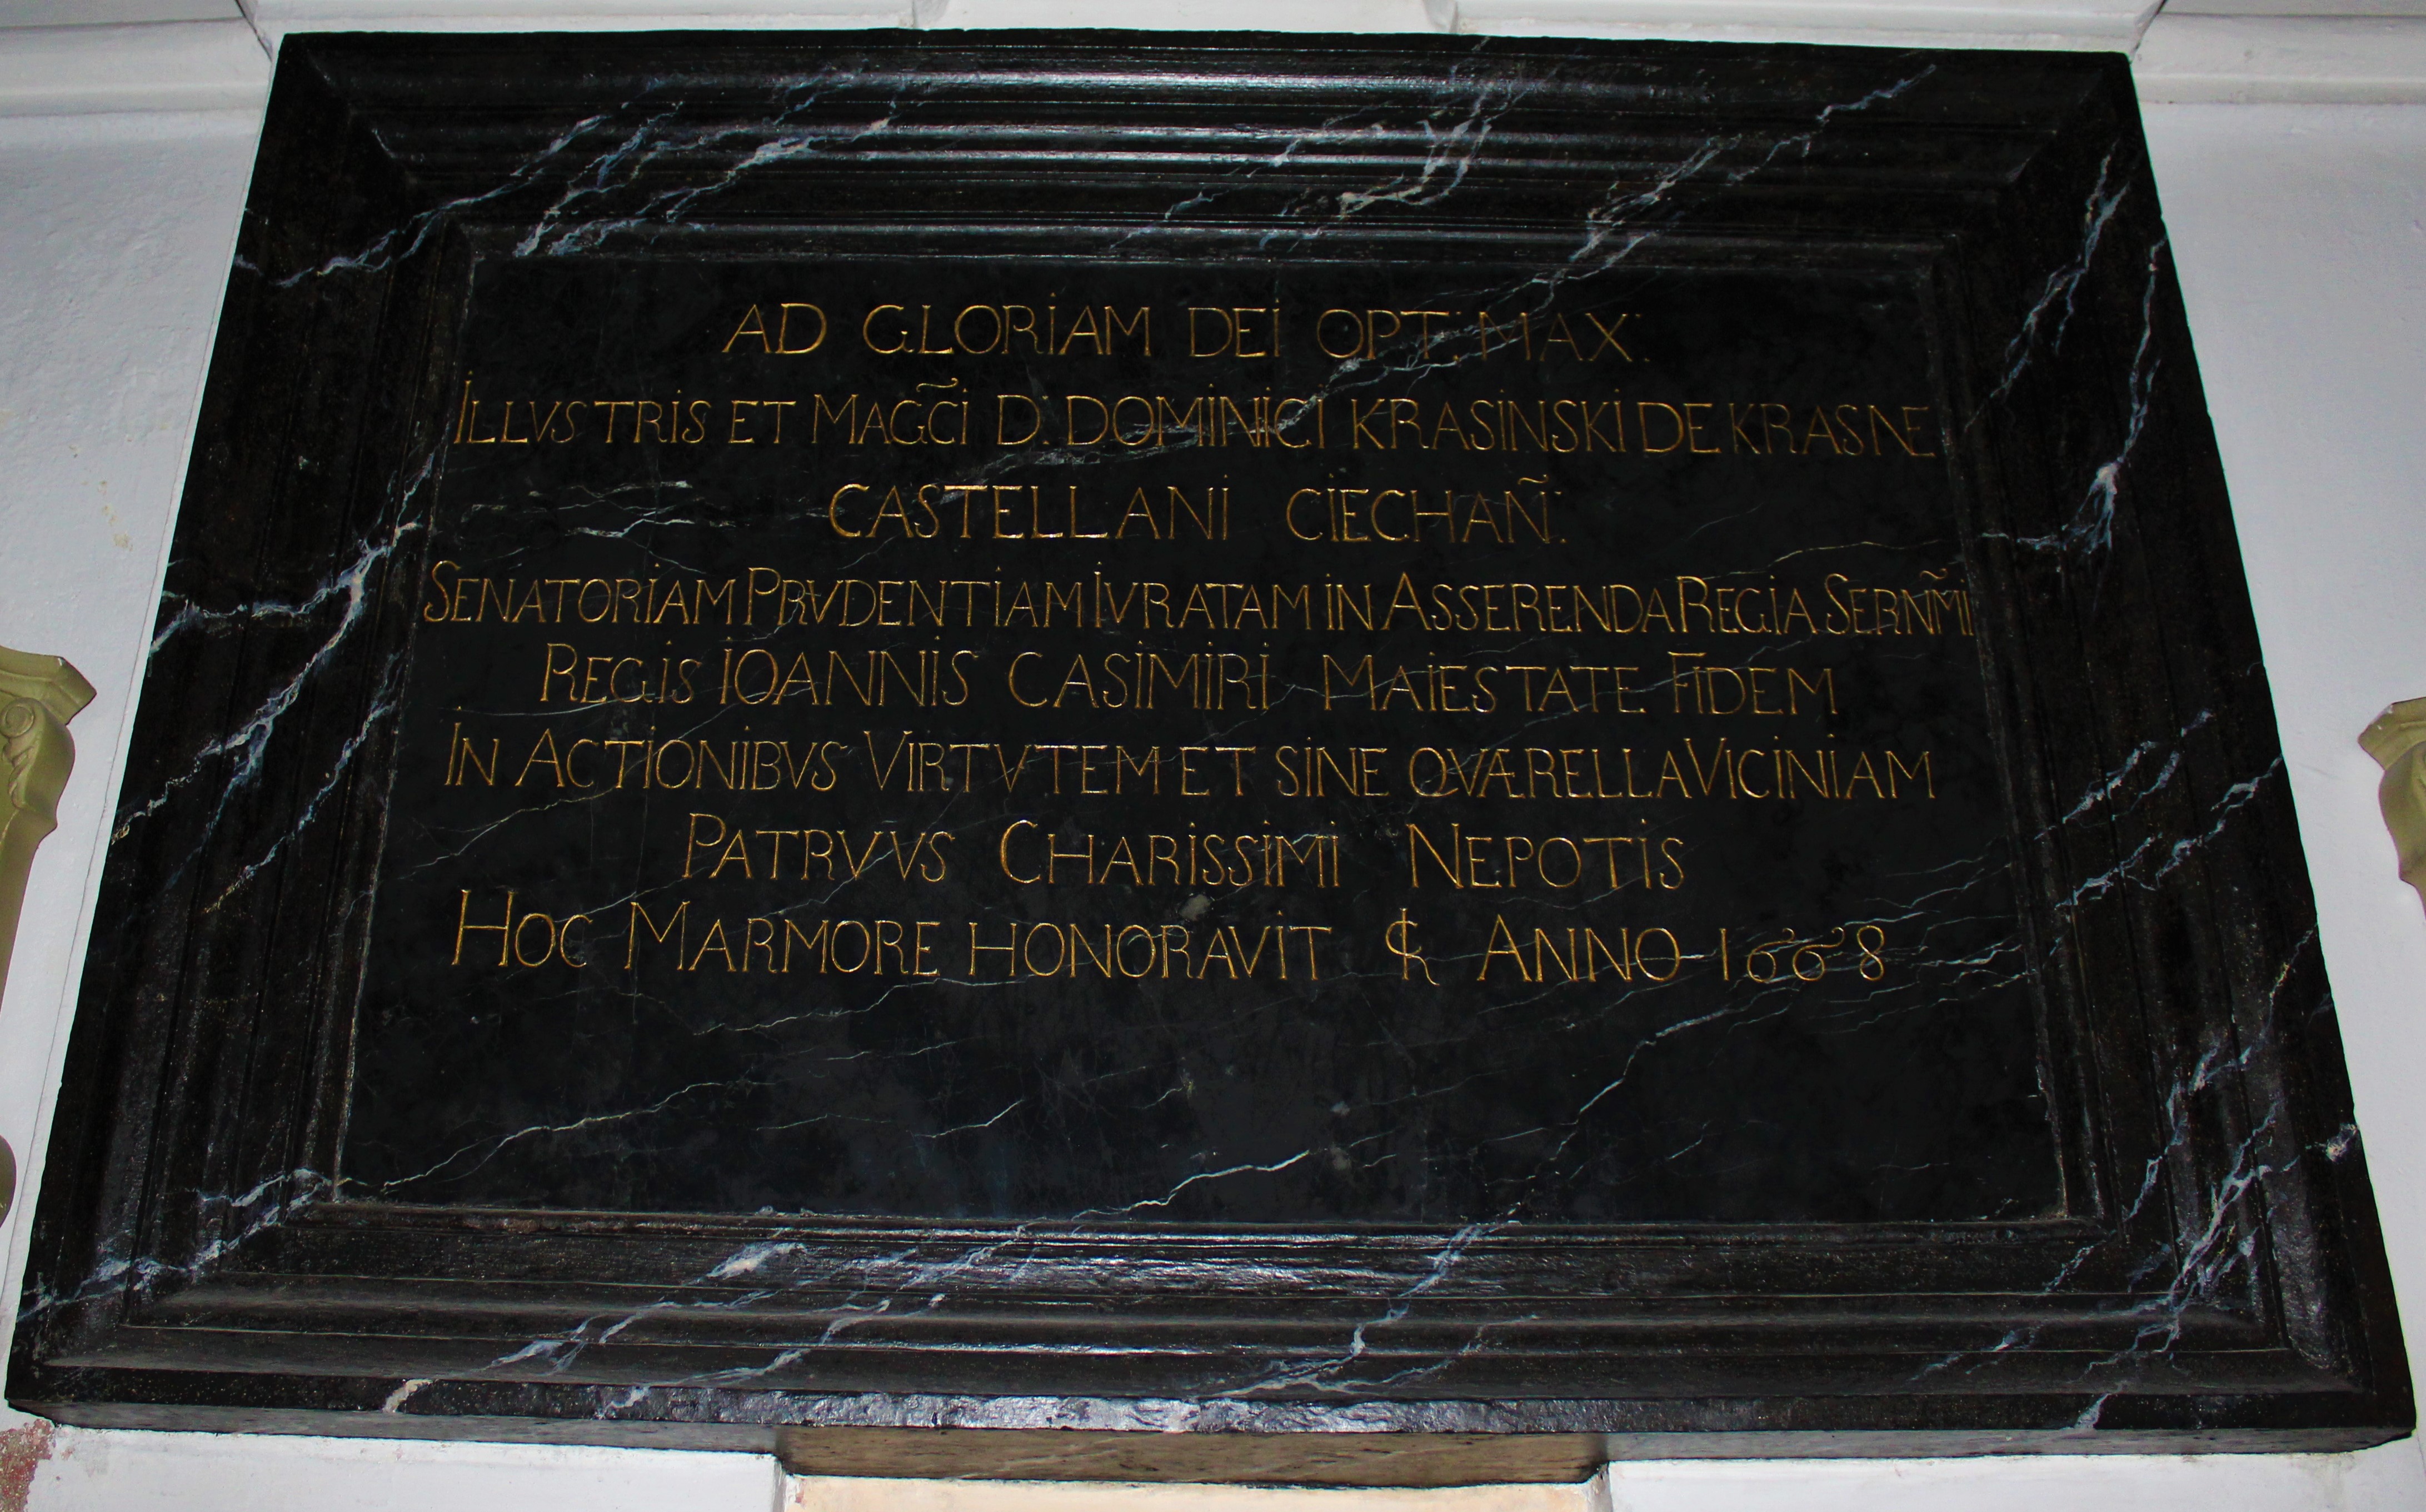 AD GLORIAM DEI OPT: MAX:
ILLVSTRIS ET MAGC̃I D. DOMINICI KRASINSKI DE KRASNE
CASTELLANI CIECHAÑ:
SENATORIAM PRVDENTIAM IVRATAM IN ASSERENDA REGIA SERNM̃I
REGIS IOANNIS CASIMIRI MAIESTATE FIDEM
IN ACTIONIBVS VIRTVTEM ET SINE QVÆRELLA VICINIAM
PATRVVS CHARISSIMI NEPOTIS
HOC MARMORE HONORAVIT ANNO 1668